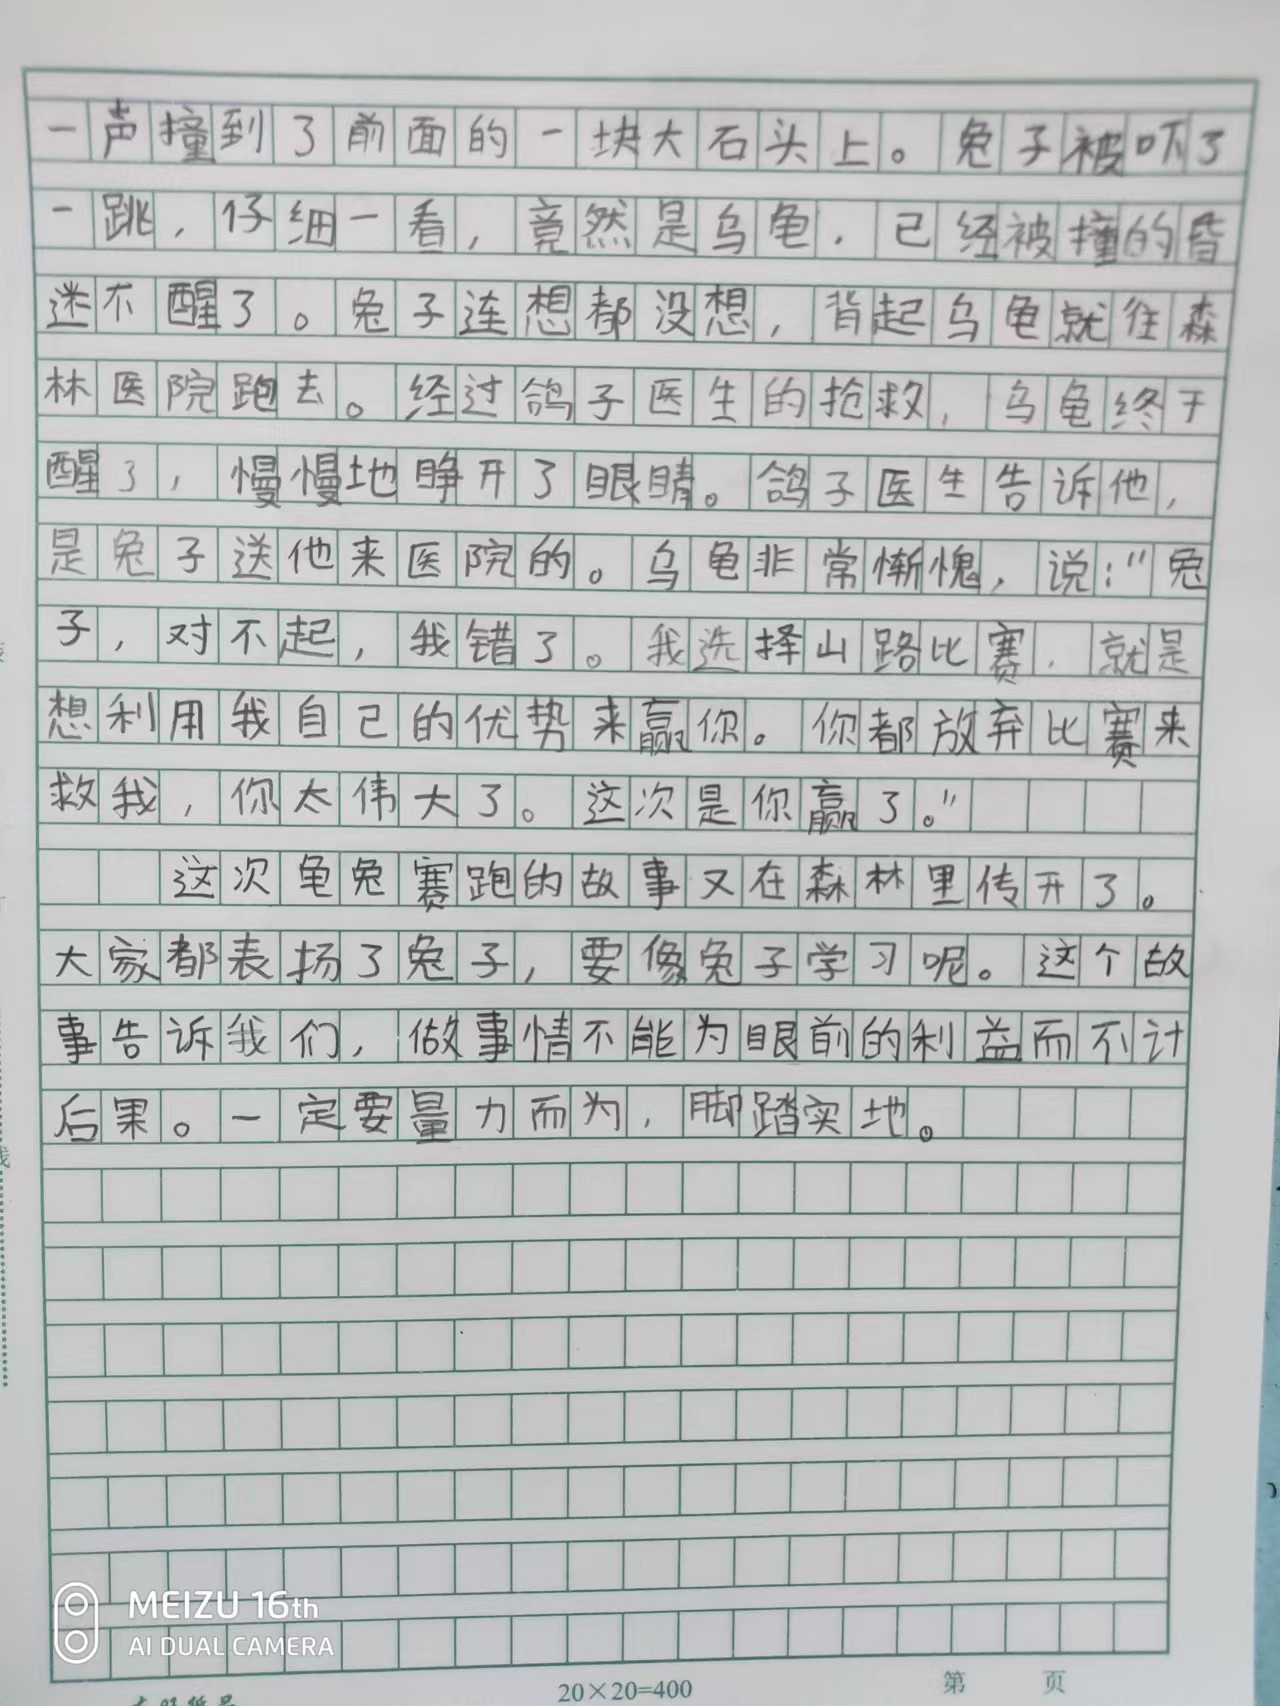 一声撞到了前面的一块大石头上。兔子被吓了
一跳，仔细一看，竟然是乌龟，已经被撞的昏
迷不醒了。兔子连想都没想，背起乌龟就往森
林医院跑去。经过鸽子医生的抢救，乌龟终于
醒了，慢慢地睁开了眼睛。鸽子医生告诉他，
是兔子送他来医院的。乌龟非常惭愧，说："兔
子，对不起，我错了。我选择山路比赛，就是
想利用我自己的优势来赢你。你都放弃比赛来
救我，你太伟大了。这次是你赢了。"
这次龟兔赛跑的故事又在森林里传开了。
大家都表扬了兔子，要像兔子学习呢。这个故
事告诉我们，做事情不能为眼前的利益而不计
后果。一定要量力而为，脚踏实地。
MEIZU 16th
AI DUAL CAMERA
20×20=400
第 页